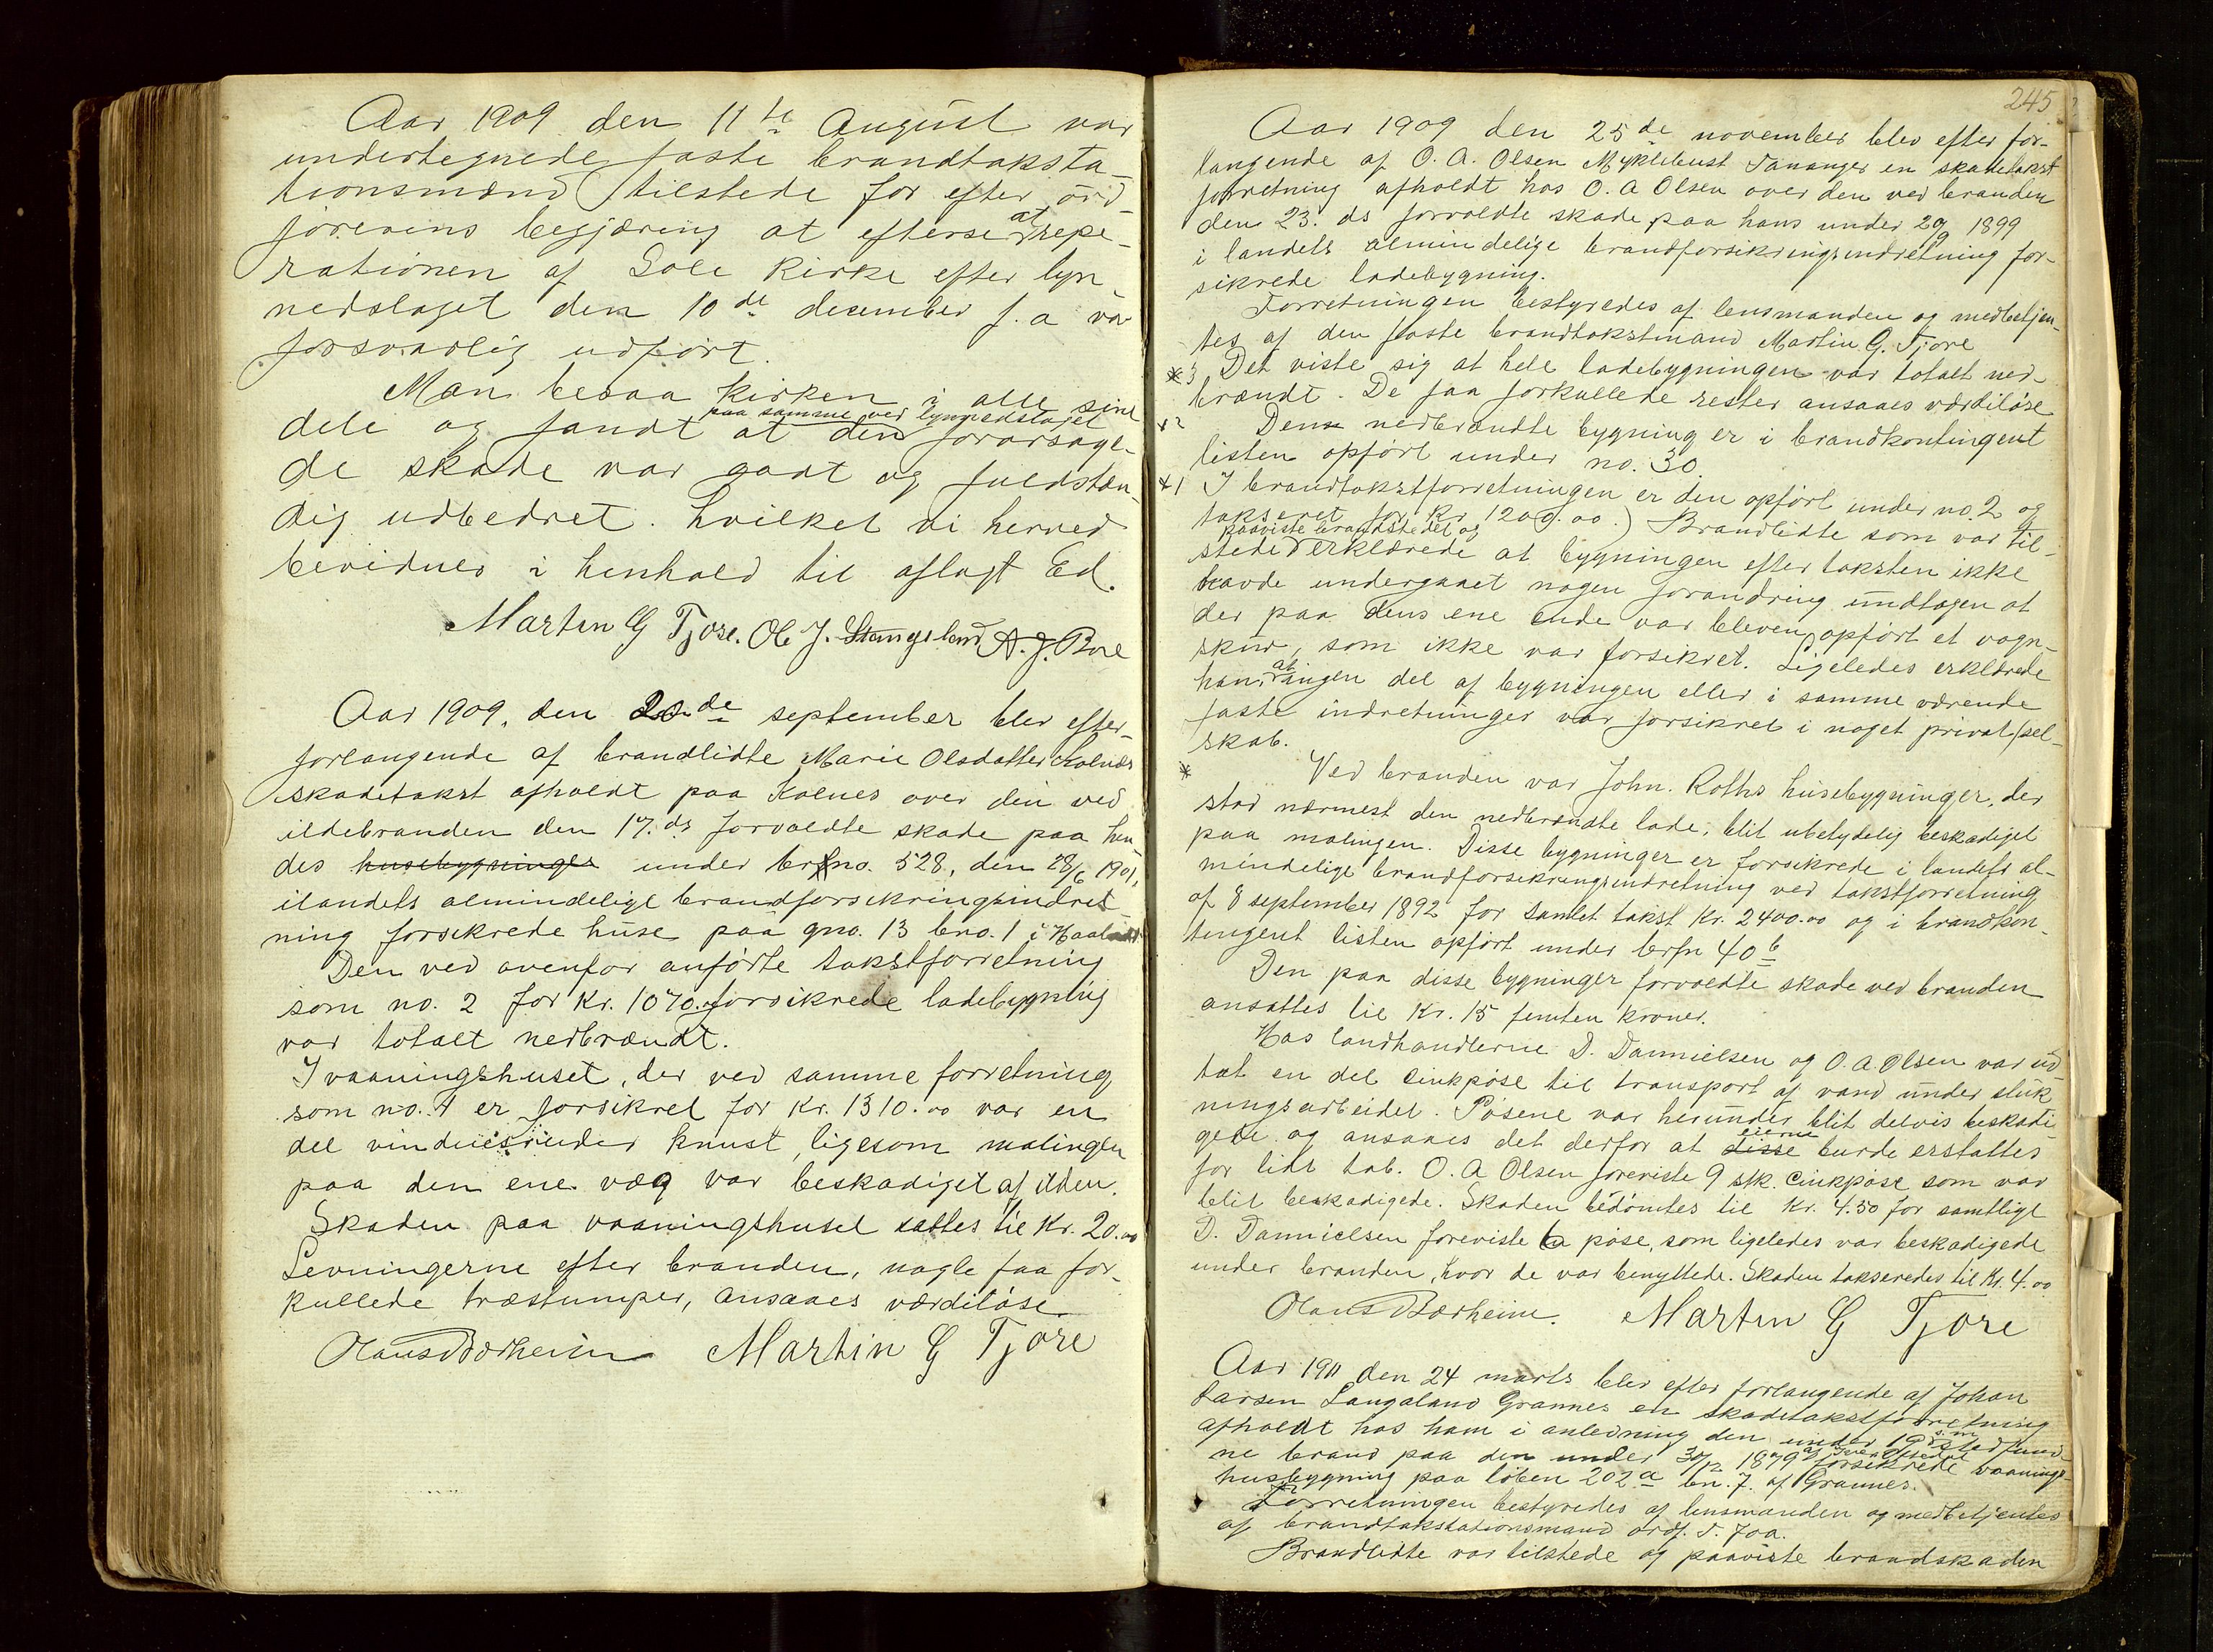 Aar 1909 den 11te August var
undertegnede faste brandtaksta-
tionsmænd tilstede for efter ord-
førerens begjæring at efterse at repe-
rationen af Sole Kirke efter lyn-
nedslaget den 10de december f. a var
forsvarlig udført.
Man besaa kirken i alle sine
dele og fandt at den paa samme ved lynnedslaget forarsage-
de skade var godt og fuldstæn-
dig udbedret. hvilket vi herved
bevidner i henhold til aflagt Ed.
Martin G Tjore. Ole J. Stangeland A. J. Boe
Aar 1909, den 20de september blev efter
forlangende af brandlidte Marie Olsdatter Kolnes
skadetakst afholdt paa Kolnes over den ved
ildebranden den 17. ds forvoldte skade paa hen
des husebygninger under brfno. 528, den 28/6 1901,
i landets almindelige brandforsikringsindret
ning forsikrede huse paa gno. 13 bno. 1 i Haaland
Den ved ovenfor anførte takstforretning
som no. 2 for Kr. 1070. forsikrede ladebygning
var totalt nedbrændt.
I vaaningshuset, der ved samme forretning
som no. 1 er forsikret for Kr. 1310.00 var en
del vinduesruder knust, ligesom malingen
paa den ene væg var beskadiget af ilden.
Skaden paa vaaningshuset sattes til Kr. 20.00
Levningerne efter branden, nogle faa for-
kullede træstumper, ansaaes værdiløse
Olaus Bærheim Martin G Tjore
245
Aar 1909 den 25de november blev efter for-
langende af O. A. Olsen Myklebust Tananger en skadetakst
forretning afholdt hos O. A Olsen over den ved branden
den 23. ds forvoldte skade paa hans under 29/9 1899
i landets almindelige brandforsikringsindretning for-
sikrede ladebygning.
Forretningen bestyredes af lensmanden og medbetjen-
tes af den faste brandtakstmand Martin G. Tjore
*3 Det viste sig at hele ladebygningen var totalt ned-
brændt. De faa forkullede rester ansaaes værdiløse
*2 Denne nedbrændte bygning er i brandkontingent
listen opført under no. 30.
*1 I brandtakstforretningen er den opført under no. 2 og
takseret for Kr. 1200.00.) Brandlidte som var til-
stede paaviste brandstedet og erklærede at bygningen efter taksten ikke
havde undergaaet nogen forandring undtagen at
der paa dens ene ende var bleven opført et vogn-
skur, som ikke var forsikret. Ligeledes erklærede
han, at ingen del af bygningen eller i samme værende
faste indretninger var forsikret i noget privat sel-
skab.
* Ved branden var John. Roths husebygninger, der
stod nærmest den nedbrændte lade, blit ubetydelig beskadiget
paa malingen. Disse bygninger er forsikrede i landets al-
mindelige brandforsikringsindretning ved takstforretning
af 8 september 1892 for samlet takst Kr. 2400.00 og i brandkon-
tingent listen opført under brfn 40b
Den paa disse bygninger forvoldte skade ved branden
ansattes til Kr. 15 femten kroner.
Hos landhandlerne D. Dannielsen og O. A. Olsen var ud
tat en del sinkpøse til transport af vand under sluk
ningsarbeidet. Pøsene var herunder blit delvis beskadi-
gede og ansaaes det derfor at disse eierne burde erstattes
for lidt tab. O. A Olsen foreviste 9 stk. Cinkpøse som var
blit beskadigede. Skaden bedømtes til Kr. 4.50 for samtlige
D. Dannielsen foreviste 6 pøse, som ligeledes var beskadigede
under branden, hvor de var benyttede. Skaden takseredes til Kr. 4.00
Olaus Bærheim. Martin G Tjore
Aar 1911 den 24 marts blev efter forlangende af Johan
Larsen Langaland Grannes en skadetakstforretning
afholdt hos ham i anledning den under 19 s.m stedfund-
ne brand paa den under 30/12 1879 forsikrede vaanings-
husbygning paa løben 202a bn. 7. af Grannes.
Forretningen bestyredes af lensmanden og medbetjentes
af brandtakstationsmand ordf. T. Joa.
Brandlidte var tilstede og paaviste brandskaden